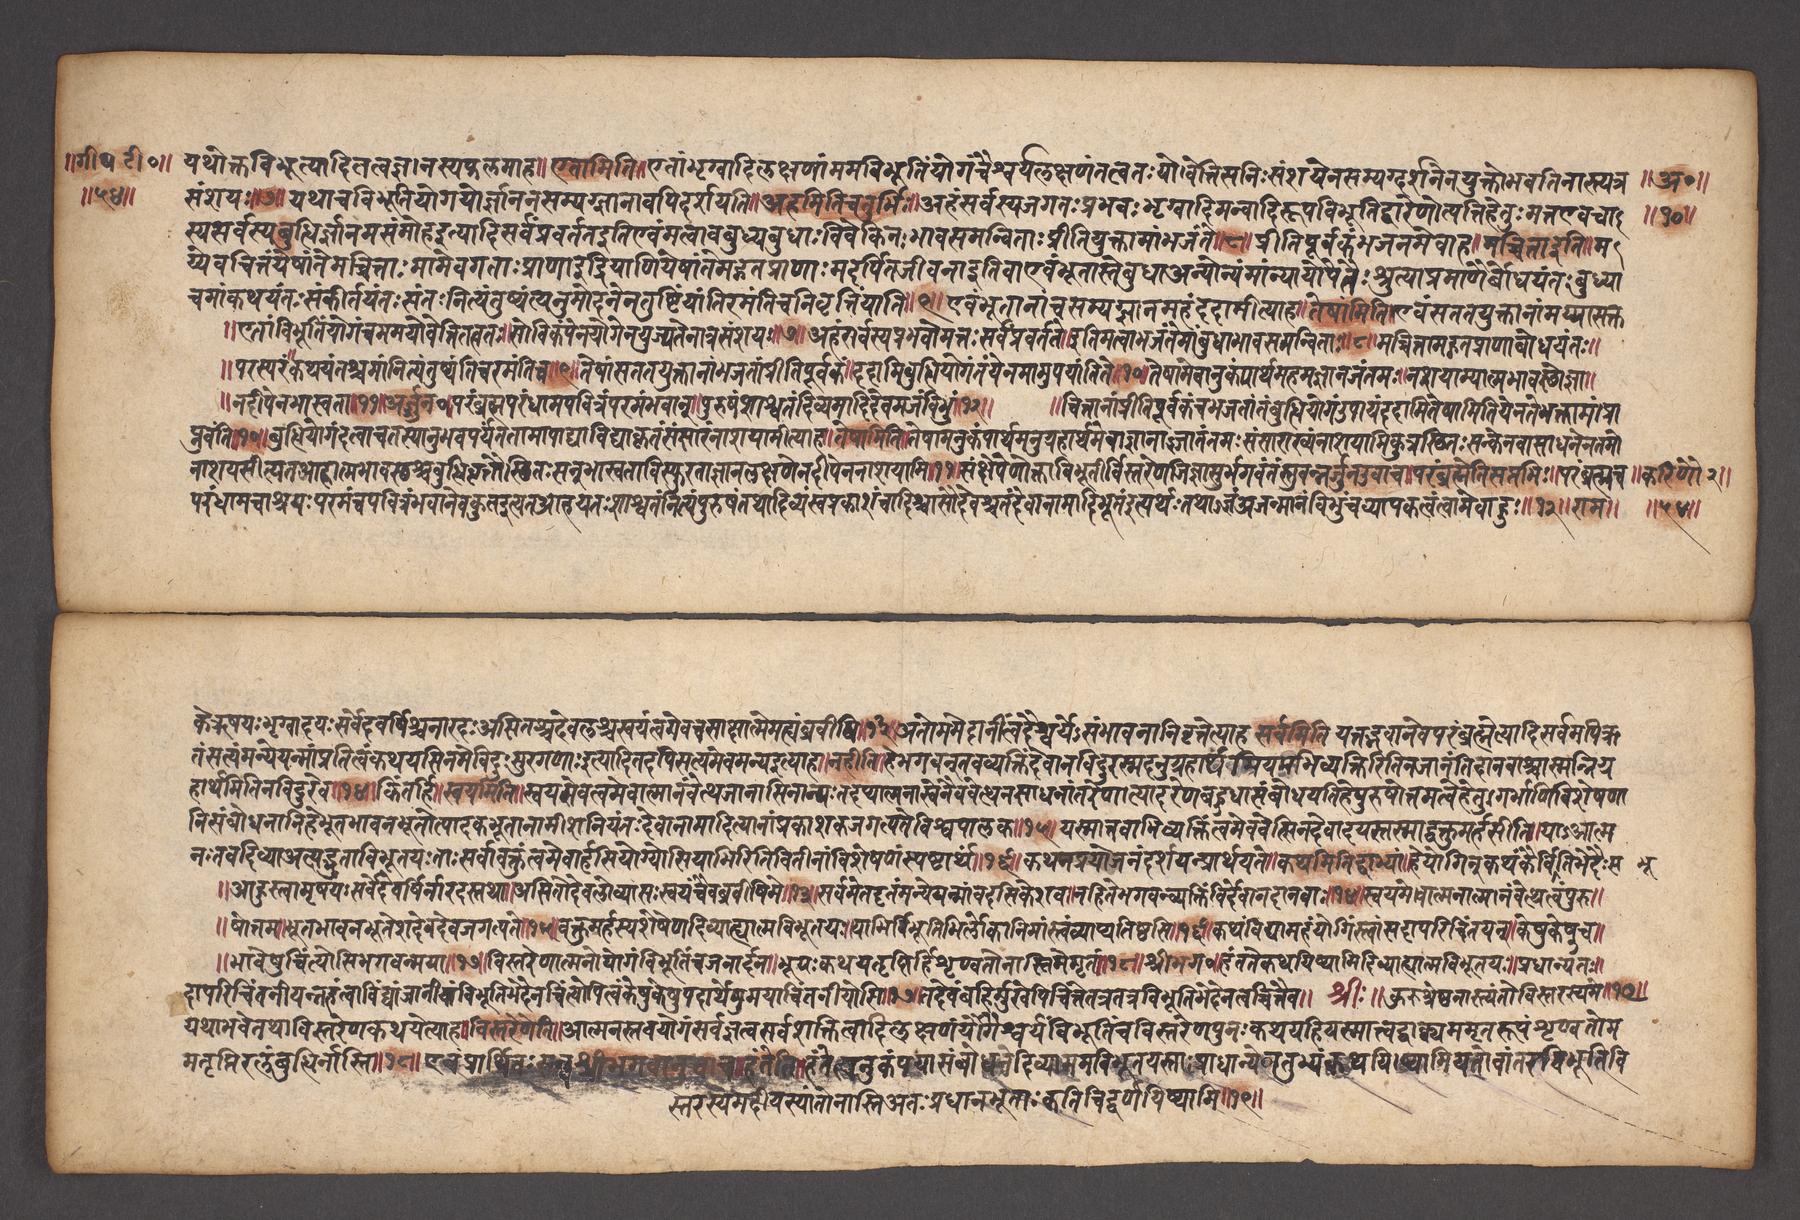 ॥गीथ टी०॥
॥५४॥
यथोक्तविभूत्यादितत्वज्ञानस्यफलमाह॥एतामिति॥एतांभृग्वादिलक्षणांममविभूतिंयोगंचैश्वर्यलक्षणंतत्वतःयोवेत्तिसनिःसंशयेनसम्यग्दर्शनेनयुक्तोभवतिनास्त्यत्र ॥अ०॥
संशयः॥७॥यथाचविभूतियोगयोर्ज्ञानेनसम्यग्ज्ञानावपिदर्शयति॥अहमितिचतुर्भिः॥अहंसर्वस्यजगतःप्रभवःभृग्वादिमन्वादिरूपविभूतिद्वारेणोत्पत्तिहेतुःमत्तएवचा ॥१०॥
स्यसर्वस्यबुद्धिर्ज्ञानमसंमोहइत्यादिसर्वंप्रवर्ततइतिएवंमत्वावबुध्यबुधाःविवेकिनःभावसमन्विताःप्रीतियुक्तामांभजंते॥८॥प्रीतिपूर्वकंभजनमेवाह॥मच्चित्ताइति॥म
य्येवचित्तंयेषांतेमच्चित्ताःमामेवगताःप्राणाइंद्रियाणियेषांतेमद्गतप्राणाःमदर्पितजीवनाइतिवाएवंभूतास्तेबुधाअन्योन्यमांन्यायोपेतैःश्रुत्याप्रमाणैर्बोधयंतःबुध्या
चमांकथयंतःसंकीर्तयंतःसंतःनित्यंतुष्यंत्यनुमोदनेनतुष्टिंयांतिरमंतिचनिवृत्तियांति॥९॥एवंभूतानांचसम्यग्ज्ञानमहंददामीत्याह॥तेषामिति॥एवंसततयुक्तानांमय्यासक्त
॥एतांविभूतिंयोगंचममयोवेत्तितत्वतः॥सोविकंपेनयोगेनयुज्यतेनात्रसंशयः॥७॥अहंसर्वस्यप्रभवोमत्तःसर्वंप्रवर्तते॥इतिमत्वाभजंतेमांबुधाभावसमन्विताः॥८॥मच्चित्तामद्गतप्राणाबोधयंतः॥
॥परस्परं॥कथयंतश्चमांनित्यंतुष्यंतिचरमंतिच॥९॥तेषांसततयुक्तानांभजतांप्रीतिपूर्वकं॥ददामिबुद्धियोगंतंयेनमामुपयांतिते॥१०॥तेषामेवानुकंपार्थमहमज्ञानजंतमः॥नाशयाम्यात्मभावस्थोज्ञा॥
॥नदीपेनभास्वता॥११॥अर्जुन०॥परंब्रह्मपरंधामपवित्रंपरमंभवान्॥पुरुषंशाश्वतंदिव्यमादिदेवमजंविभुं॥१२॥ ॥चित्तानांप्रीतिपूर्वकंचभजतांतंबुद्धियोगंउपायंददामितेषामितियेनतेभक्तामांप्रा
प्नुवंति॥१०॥बुद्धियोगंदत्वाचतस्यानुभवपर्यंततामापाद्याविद्याकृतंसंसारंनाशयामीत्याह॥तेषामिति॥तेषामनुकंपार्थमनुग्रहार्थमेवाज्ञानाज्जातंतमःसंसाराख्यंनाशयामिकुत्रस्थितःसन्केनवासाधनेनतमो
नाशयसीत्यतआह॥आत्मभावस्थःबुद्धिवृत्तौस्थितःसन्भास्वताविस्फुरताज्ञानलक्षणेनदीपेननाशयामि॥११॥संक्षेपेणोक्ताविभूतीर्विस्तरेणजिज्ञासुर्भगवंतंस्तुवन्नर्जुनउवाच॥परंब्रह्मेतिसप्तभिः॥परंब्रह्मच
परंधामचाश्रयःपरमंचपवित्रंभवानेवकुतइत्यतआहयतःशाश्वतंनित्यंपुरुषंतथादिव्यंस्वप्रकाशंचादिश्चासौदेवश्चतंदेवानामादिभूतंइत्यर्थःतथाऽजंअजन्मानंविभुंचव्यापकत्वंत्वामेवाहुः॥१२॥राम॥ ॥५४॥
केऋषयःभृग्वादयःसर्वेदेवर्षिश्चनारदःअसितश्चदेवलश्चस्वयंत्वमेवचसाक्षान्मेमह्यंब्रवीषि॥१३॥अतोममेदानींत्वदैश्वर्येऽसंभावनानिवृत्तेत्याह सर्वमिति यत्तद्भवानेवपरंब्रह्मेत्यादिसर्वमपिऋ
तंसत्यंमन्येयन्मांप्रतित्वंकथयसिनमेविदुःसुरगणाःइत्यादितदपिसत्यमेवमन्यइत्याह॥नहीति॥हेभगवन्तवव्यक्तिंदेवानविदुः
हार्थमितिनविदुरेव॥१४॥किंतर्हि॥स्वयमिति॥स्वयमेवत्वमेवात्मानंवेत्थजानासिनान्यःतदप्यात्मनास्वेनैववेत्थनसाधनांतरेणात्यादरेणबहुधासंबोधयतिहेपुरुषोत्तमत्वेहेतुगर्भाणिविशेषणा
निसंबोधनानिहेभूतभावनभूतोत्पादकभूतानामीशनियंतःदेवानामादित्यानांप्रकाशकजगत्पतेविश्वपालक॥१५॥यस्मात्तवाभिव्यक्तिंत्वमेववेत्सिनदेवादयस्तस्माद्वक्तुमर्हसीति॥याऽआत्म
नःतवदिव्याअत्यद्भुताविभूतयःताःसर्वावक्तुंत्वमेवार्हसियोग्योसियाभिरितिविभूतीनांविशेषणंस्पष्टार्थं॥१६॥कथनप्रयोजनंदर्शयन्प्रार्थयते॥कथमितिद्वाभ्यां॥हेयोगिन्कथंकैर्विभूतिभेदैःस भू
॥आहुस्त्वामृषयःसर्वेदेवर्षिर्नारदस्तथा॥असितोदेवलोव्यासःस्वयंचैवब्रवीषिमे॥१३॥सर्वमेतदृतंमन्येयन्मांवदसिकेशव॥नहितेभगवन्व्यक्तिंविदुर्देवानदानवाः॥१४॥स्वयमेवात्मनात्मानंवेत्थत्वंपुरु॥
॥षोत्तम॥भूतभावनभूतेशदेवदेवजगत्पते॥१५॥वक्तुमर्हस्यशेषेणदिव्याह्यात्मविभूतयः॥याभिर्विभूतिभिर्लोकानिमांस्त्वंव्याप्यतिष्ठसि॥१६॥कथंविद्यामहंयोगिंस्त्वांसदापरिचिंतयन्॥केषुकेषुच॥
॥भावेषुचिंत्योसिभगवन्मया॥१७॥विस्तरेणात्मनोयोगंविभूतिंचजनार्दन॥भूयःकथयतृप्तिर्हिशृण्वतोनास्तिमेमृतं॥१८॥श्रीभग०॥हंततेकथयिष्यामिदिव्याह्यात्मविभूतयः॥प्राधान्यतः॥
दापरिचिंतनीयन्नहंत्वांविद्यांजानीयांविभूतिभेदेनचिंत्योपित्वंकेषुकेषुपदार्थेषुमयाचिंतनीयोसि॥१७॥तदेवंबहिर्मुखेपिचित्तेतत्रतत्रविभूतिभेदेनत्वच्चिंतैव॥ श्रीः॥ ॥कुरुश्रेष्ठनास्त्यंतोविस्तरस्यमे॥१९॥
यथाभवेत्तथाविस्तरेणकथयेत्याह॥विस्तरेणेति॥आत्मनस्तवयोगंसर्वज्ञत्वसर्वशक्तित्वादिलक्षणंयोगैश्वर्यंविभूतिंचविस्तरेणपुनःकथयहियस्मात्त्वद्वाक्यममृतरूपंशृण्वतोम
मतृप्तिरलंबुद्धिर्नास्ति॥१८॥एवंप्रार्थितःसन्श्रीभगवानुवाच॥हंतेति॥हंतेत्यनुकंपयासंबोधनेदिव्याममविभूतयस्ताःप्राधान्येनतुभ्यंकथयिष्यामियतोवांतरविभूतिवि
स्तरस्यमदीयस्यांतोनास्तिअतःप्रधानभूताःकतिचिद्वर्णयिष्यामि॥१९॥